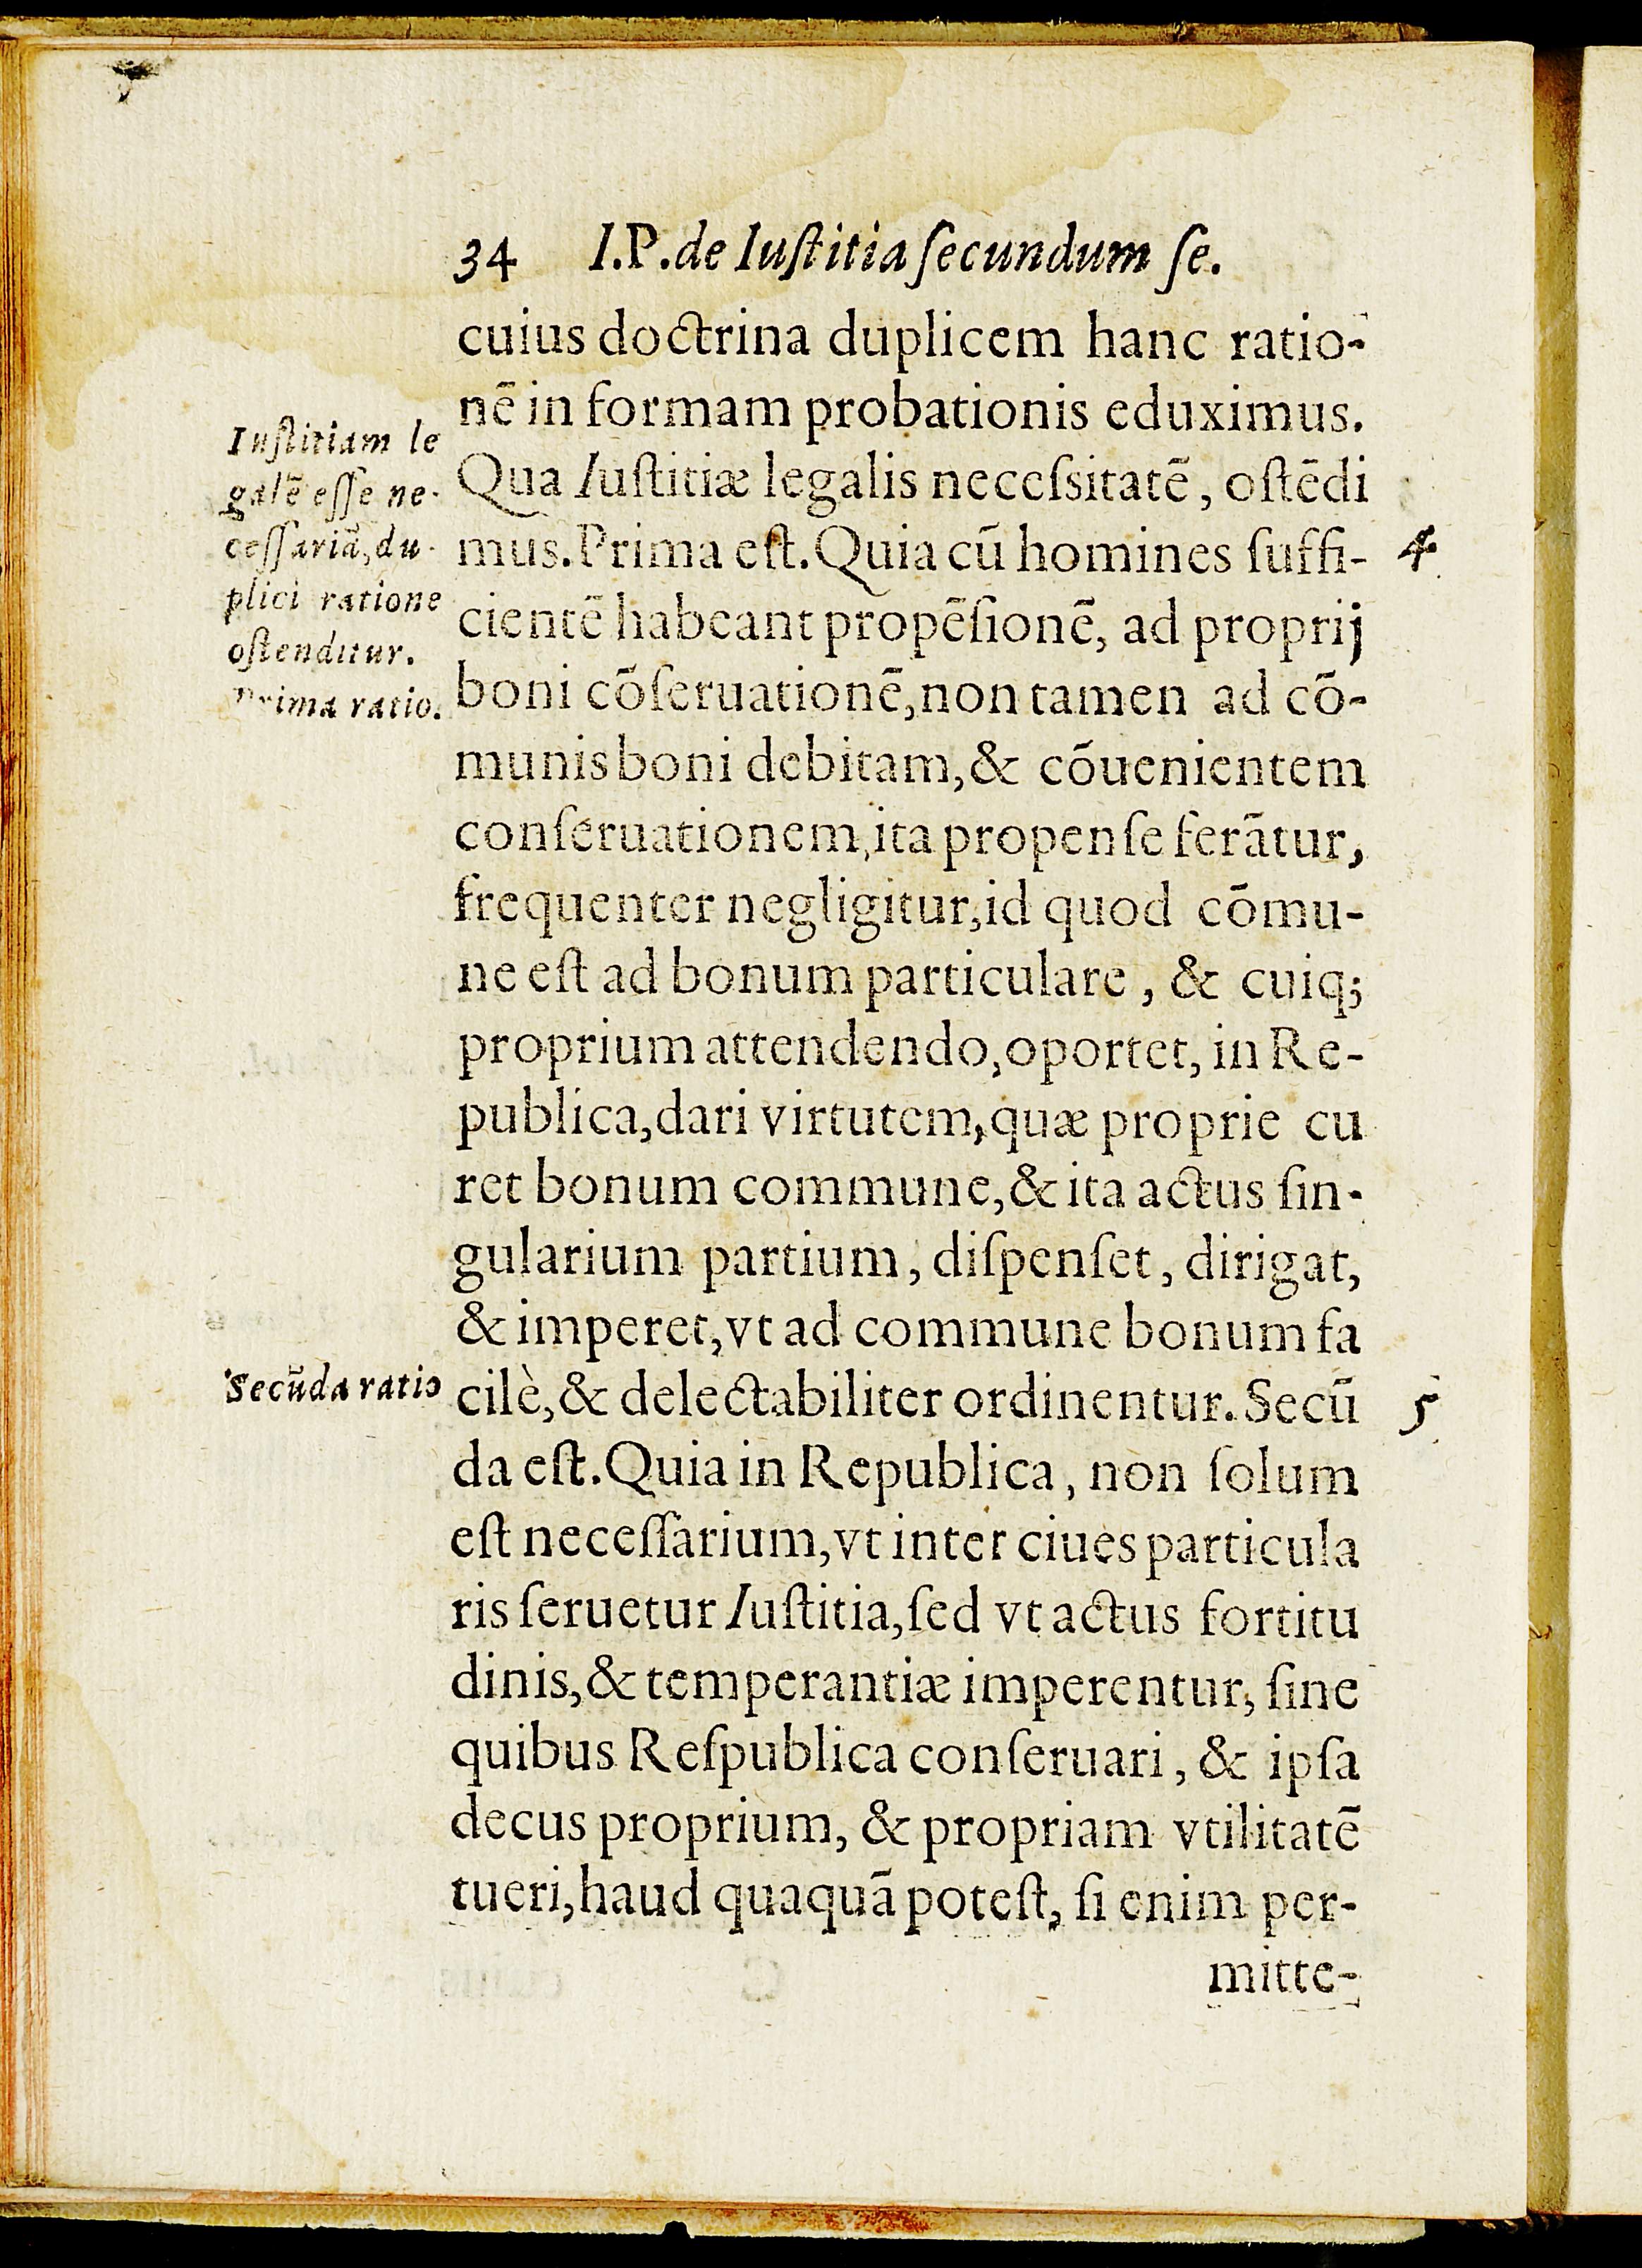 34 I.P. de Iuſtitia ſecundum ſe.
cuius doctrina duplicem hanc ratio-
nē in formam probationis eduximus.
Qua Iuſtitiæ legalis neceſsitatē, oſtēdi
mus. Prima eſt. Quia cū homines ſuffi-
cientē habeant propēſionē, ad proprij
boni cōſeruationē, non tamen ad cō-
munis boni debitam, & cōuenientem
conſeruationem, ita propenſe ferātur,
frequenter negligitur, id quod cōmu-
ne eſt ad bonum particulare, & cuiq;
proprium attendendo, oportet, in Re-
publica, dari virtutem, quæ proprie cu
ret bonum commune, & ita actus ſin-
gularium partium, diſpenſet, dirigat,
& imperet, vt ad commune bonum fa
cilè, & delectabiliter ordinentur. Secū
da eſt. Quia in Republica, non ſolum
eſt neceſſarium, vt inter ciues particula
ris ſeruetur Iuſtitia, ſed vt actus fortitu
dinis, & temperantiæ imperentur, ſine
quibus Reſpublica conſeruari, & ipſa
decus proprium, & propriam vtilitatē
tueri, haud quaquā poteſt, ſi enim per-
mitte-
Iuſtitiam le
galē eſſe ne-
ceſſariā, du-
plici ratione
oſtenditur.
Prima ratio.
Secūda ratio
4
5